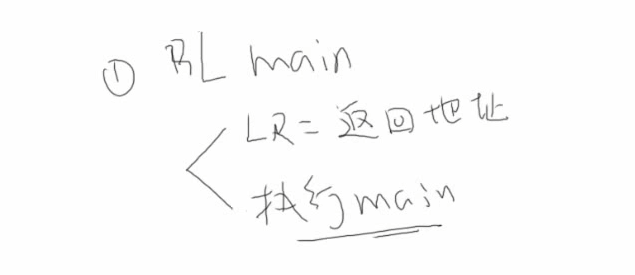 ① BL main
LR = 返回地址
执行main